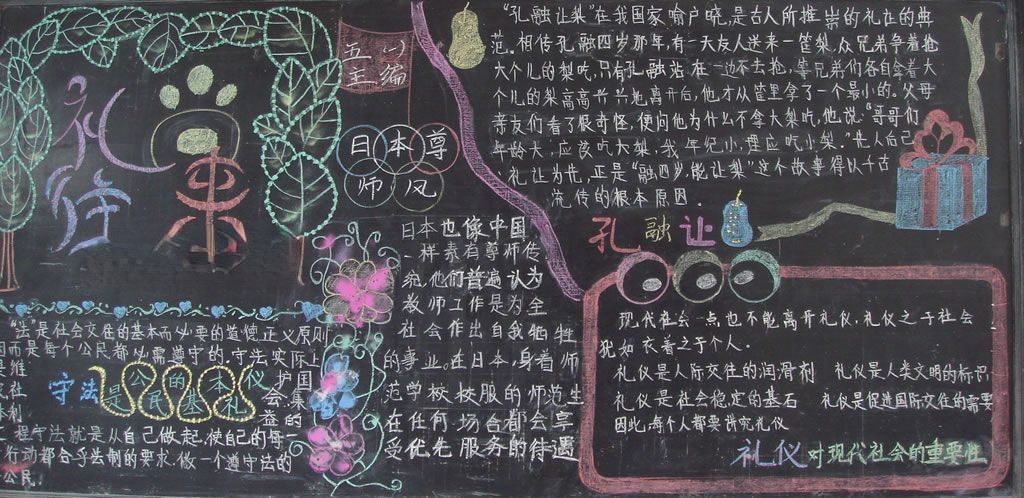 礼
往
来
五
王
一
编
日本尊
师风
"孔融让梨"在我国家喻户晓,是古人所推崇的礼让的典
范。相传孔融四岁那年,有一天友人送来一筐梨,众兄弟争着抢
大个儿的梨吃,只有孔融站在一边不去抢,等兄弟们各自拿着大
个儿的梨高高兴兴地离开后,他才从筐里拿了一个最小的。父母
亲友们看了很奇怪,便问他为什么不拿大梨吃,他说:"哥哥们
年龄大,应该吃大梨,我年纪小,理应吃小梨。"先人后己
,礼让为先,正是"融四岁,能让梨"这个故事得以千古
流传的根本原因.
孔融让
日本也像中国
一样素有尊师传
统,他们普遍认为
教师工作是为全
社会作出自我牺牲
的事业。在日本身着师
范学校校服的师范生
在任何场合都会享
受优先服务的待遇
"法"是社会交往的基本而必要的道德正义原则
因而是每个公民都必需遵守的,守法实际上
是维
护国
会集
益的
守法是公民的基本礼仪
程守法就是从自己做起,使自己的每一
行动都合乎法制的要求,做一个遵守法的
公民.
现代社会一点也不能离开礼仪,礼仪之于社会
犹如衣着之于个人.
礼仪是人际交往的润滑剂 礼仪是人类文明的标识
礼仪是社会稳定的基石 礼仪是促进国际交往的需要
因此,每个人都要讲究礼仪
礼仪对现代社会的重要性